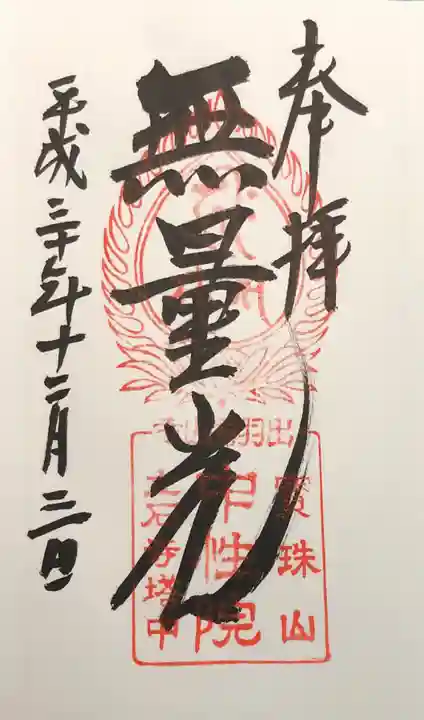 奉拝
無量光
平成三十年十二月三日
出羽山寺
寳珠山
中性院
立石寺塔中